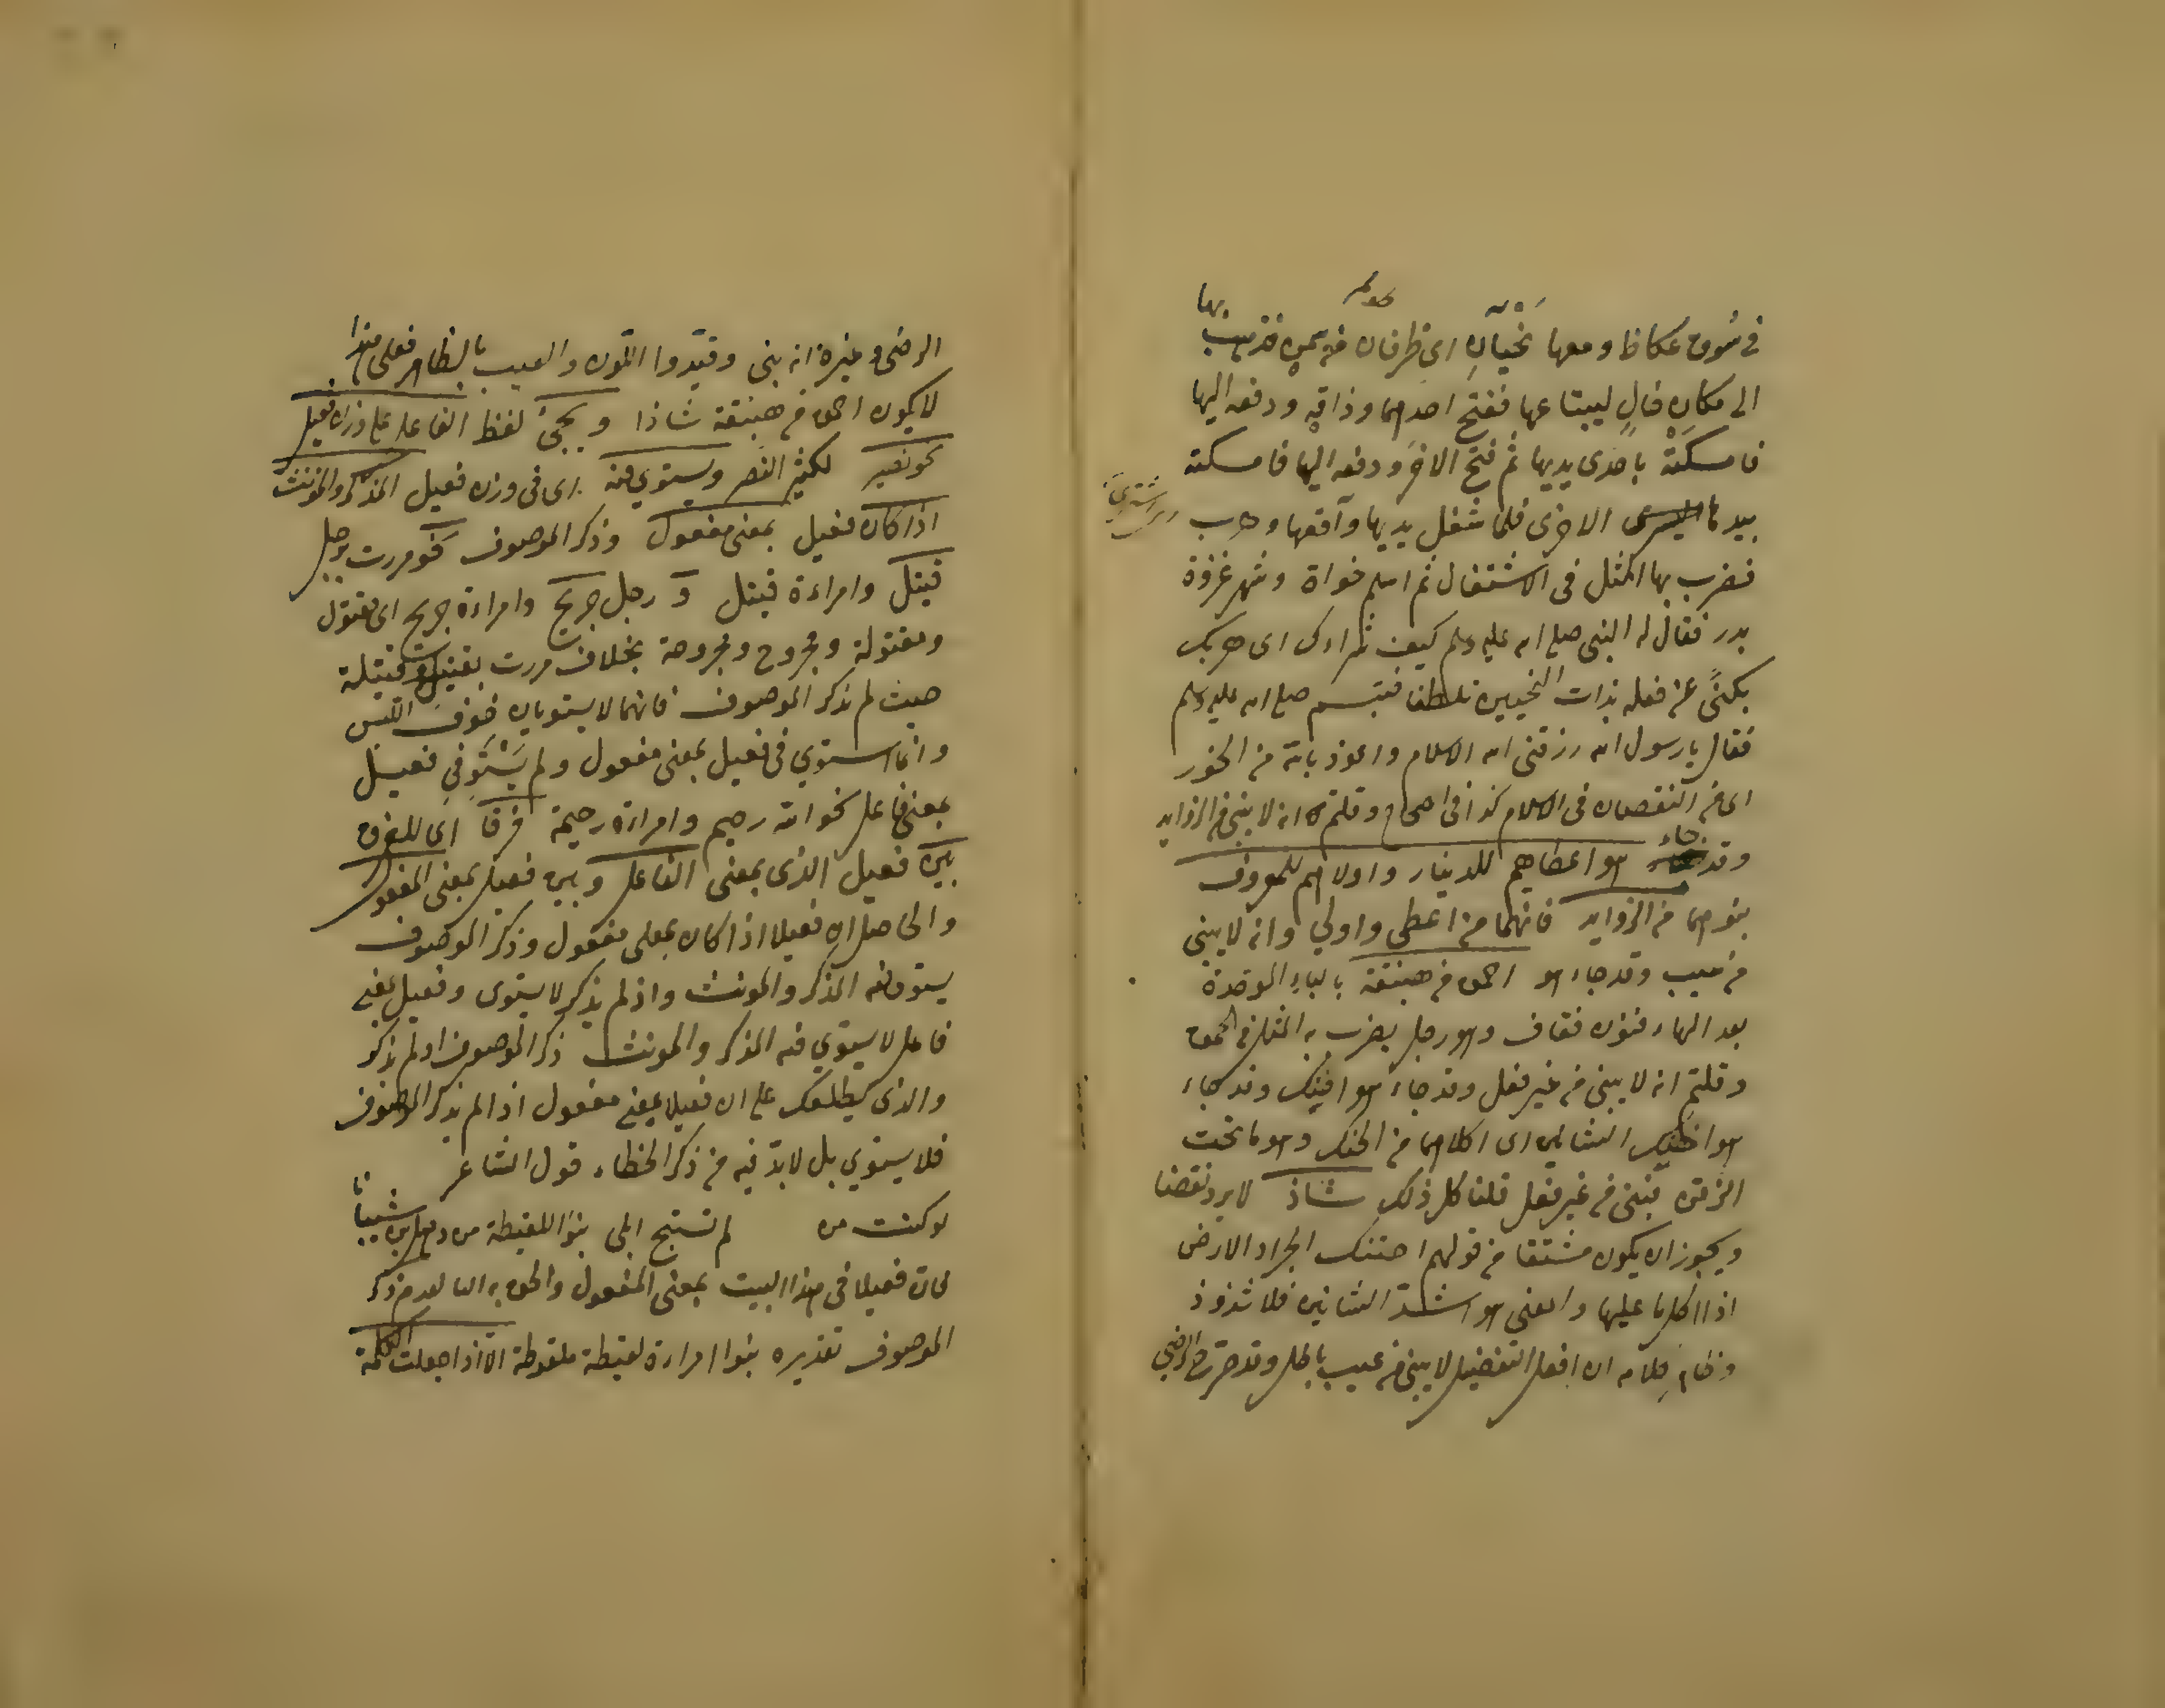 في سُوق عكاظ ومعها نَحْيَانِ اي ظرفان من سمن فذهب بها
الى مكان خالٍ ليبتاعها ففتح احدهما وذاقه ودفعه اليها
فامسكَتْه باحدى يديها ثم فتح الاخر ودفعه اليها فامسكته
بيدها الاخرى فلما شغل يديها واقعها وهرب
فضرب بها المثل في الاشتغال ثم اسلم خوات وشهد غزوة
بدر فقال له النبي صلى الله عليه وسلم كيف شراءك اى
يكنى عن فعله بذات النحيين تلطفا فتبسم صلى الله عليه وسلم
فقال يا رسول الله رزقنى الله الاسلام واعوذ بالله من الحور
اى من النقصان فى الاسلام كذا فى الصحاح وقلتم انه لا يبنى من الزوايد
وقد جاء هو اعطاهم للدينار واولاهم للمعروف
بنوهما من الزوايد فانهما من اعطى واولي وانه لا يبنى
من عيب وقد جاء هو احمق من هبنقة بالباء الموحدة
بعد الهاء فنون فقاف وهو رجل يضرب به المثل في الحمق
وقلتم انه لا يبنى من غير فعل وقد جاء هو وقد جاء
هو احنك الشاتين اى اكلهما من الحنك وهو ما تحت
الذقن فبنى من غير فعل قلنا كل ذلك شاذ لا يرد نقضا
ويجوز ان يكون مشتقا من قولهم احتنك الجراد الارض
اذا اكل ما عليها والمعنى هو اشد الشاتين فلا شذوذ
وظاهر كلامه ان افعل التفضيل لا يبنى من عيب باطل وقد صرح الرضي
الرضى وغيره انه بنى وقيدوا اللون والعيب بالظاهر فعلى هذا
لا يكون احمق من هبنقة شاذا ويجئ لفظ الفاعل على وزان فعيل
نحو نصير لكثير النصر ويستوي فيه اى فى وزن فعيل المذكر والمؤنث
اذا كان فعيل بمعنى مفعول وذكر الموصوف نحو مررت برجل
قتيل وامراءة قتيل و رجل جريح وامراءة جريح اى مقتول
ومقتولة ومجروح ومجروحة بخلاف مررت بقتيل وقتيلة
حيث لم يذكر الموصوف فانهما لا يستويان خوف اللبس
وانما استوي فى فعيل بمعنى مفعول ولم يَسْتَو في فعيل
بمعنى فاعل نحو الله رحيم وامراءة رحيمة فرقا اى للفرق
بين فعيل الذى بمعنى الفاعل وبين فعيل بمعنى المفعول
والحاصل ان فعيلا اذا كان بمعنى مفعول وذكر الموصوف
يستوى فيه المذكر والمونث واذ لم يذكر لا يستوى وفعيل بمعنى
فاعل لا يستوي فيه المذكر والمونث ذكر الموصوف او لم يذكر
والذى يطلعك على ان فعيلا بمعنى مفعول اذا لم يذكر الموصوف
فلا يستوي بل لابد فيه من ذكر قول الشاعر
لو كنت من لم تستبح ابلى بنو اللقيطة من ذهل بن شيبانا
فان فعيلا فى هذا البيت بمعنى المفعول والحق به التا لعدم ذكر
الموصوف تقديره بنوا امراءة لقيطة ملقوطة الا اذا جعلت الكلمة